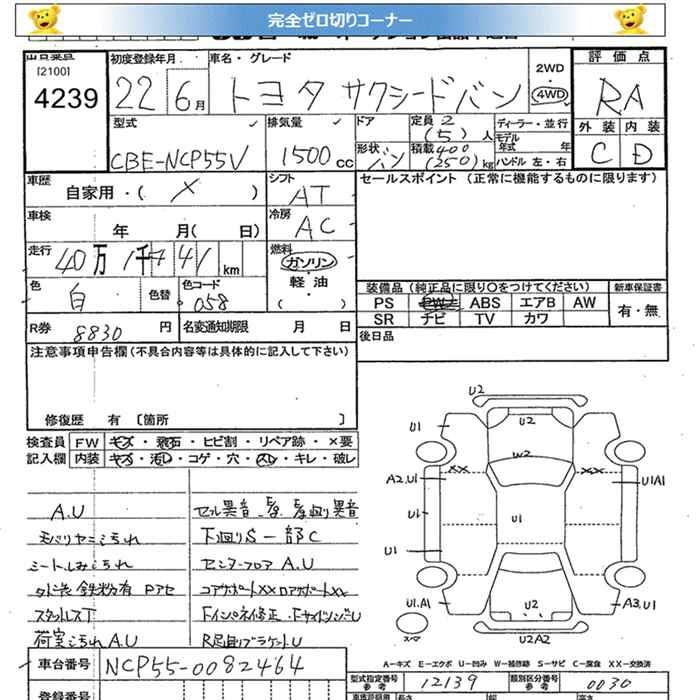 完全ゼロ切りコーナー
[2100]
4239
初度登録年月
22年 6月
車名・グレード
トヨタ サクシードバン
2WD
4WD
評価点
RA
外装 内装
C D
型式
CBE-NCP55V
排気量
1500 cc
ドア
形状
バン
定員 2
(5) 人
積載 400
(250) kg
ディーラー・並行
モデル
年式 年
ハンドル 左・右
車歴
自家用・( X )
シフト
AT
セールスポイント (正常に機能するものに限ります)
車検
年 月( 日)
冷房
AC
走行
40万 1千741 km
燃料
ガソリン
軽油
( )
色
白
色替
色コード
058
装備品(純正品に限り○をつけてください)
新車保証書
PS PW ABS エアB AW
SR ナビ TV カワ
有・無
R券
8830 円
名変通知期限 月 日
後日品
注意事項申告欄(不具合内容等は具体的に記入して下さい)
修復歴 有 〔箇所 〕
検査員
記入欄
FW キズ・飛石・ヒビ割・リペア跡・×要
内装 キズ・汚レ・コゲ・穴・スレ・キレ・破レ
A.U
モバリヤニ汚れ
シートしみ汚れ
スタットレスT
荷室汚れ A.U
下回りS 一部C
センターフロア A.U
コアサポートXX ロアサポートXX
車台番号
NCP55-0082464
登録番号
U2
U2
U1
W2
XX
XX
A2.U1
U1A1
U1
U1
U1
U1.A1
U2
A3.U1
U2A2
スマ
A-キズ E-エクボ U-凹み W-補修跡 S-サビ C-腐食 XX-交換済
型式指定番号
参考
12139
類別区分番号
参考
0030